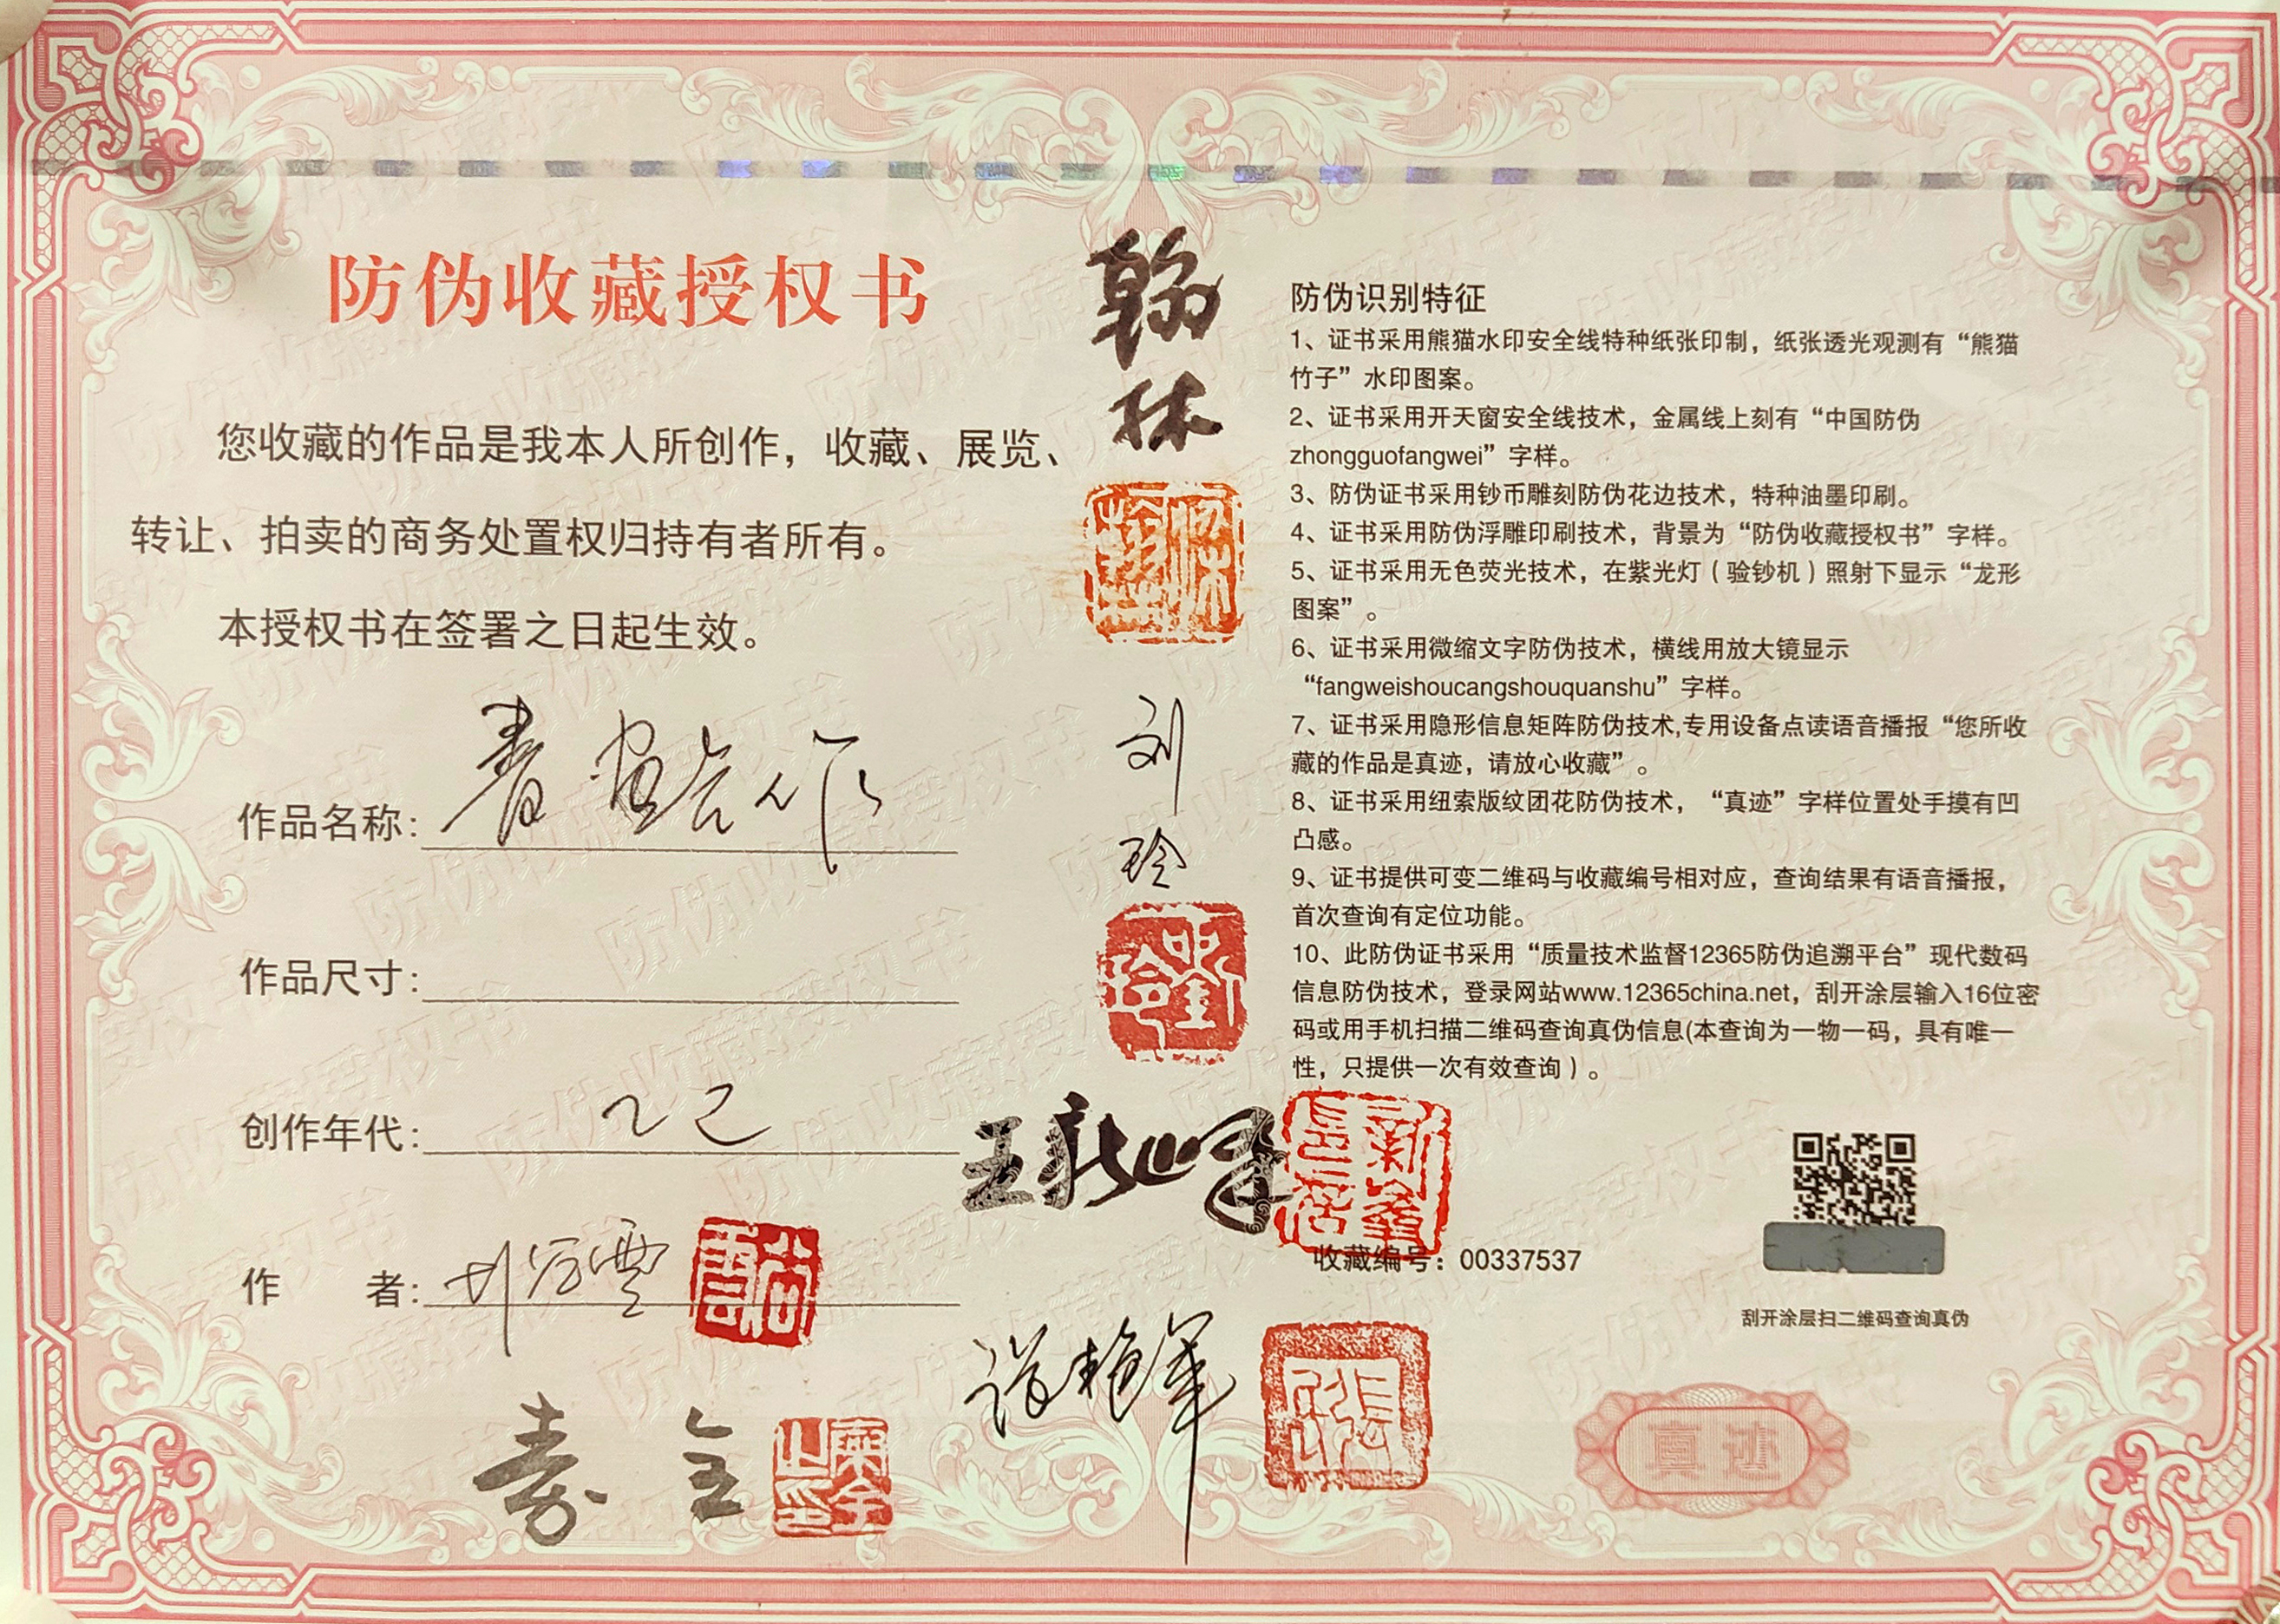 防伪收藏授权书
您收藏的作品是我本人所创作，收藏、展览、
转让、拍卖的商务处置权归持有者所有。
本授权书在签署之日起生效。
作品名称：
作品尺寸：
创作年代：乙巳
作　者：
翰林
刘玲
王新峰
防伪识别特征
1、证书采用熊猫水印安全线特种纸张印制，纸张透光观测有“熊猫
竹子”水印图案。
2、证书采用开天窗安全线技术，金属线上刻有“中国防伪
zhongguofangwei”字样。
3、防伪证书采用钞币雕刻防伪花边技术，特种油墨印刷。
4、证书采用防伪浮雕印刷技术，背景为“防伪收藏授权书”字样。
5、证书采用无色荧光技术，在紫光灯（验钞机）照射下显示“龙形
图案”。
6、证书采用微缩文字防伪技术，横线用放大镜显示
“fangweishoucangshouquanshu”字样。
7、证书采用隐形信息矩阵防伪技术,专用设备点读语音播报“您所收
藏的作品是真迹，请放心收藏”。
8、证书采用纽索版纹团花防伪技术，“真迹”字样位置处手摸有凹
凸感。
9、证书提供可变二维码与收藏编号相对应，查询结果有语音播报，
首次查询有定位功能。
10、此防伪证书采用“质量技术监督12365防伪追溯平台”现代数码
信息防伪技术，登录网站www.12365china.net，刮开涂层输入16位密
码或用手机扫描二维码查询真伪信息(本查询为一物一码，具有唯一
性，只提供一次有效查询）。
收藏编号：00337537
刮开涂层扫二维码查询真伪
真迹